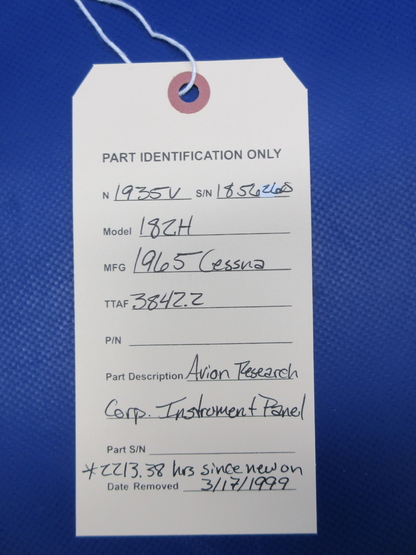 PART IDENTIFICATION ONLY
N 1935V S/N 18256268
Model 182H
MFG 1965 Cessna
TTAF 3842.2
P/N
Part Description Avion Research
Corp. Instrument Panel
Part S/N
*2213.38 hrs since new on
Date Removed 3/17/1999